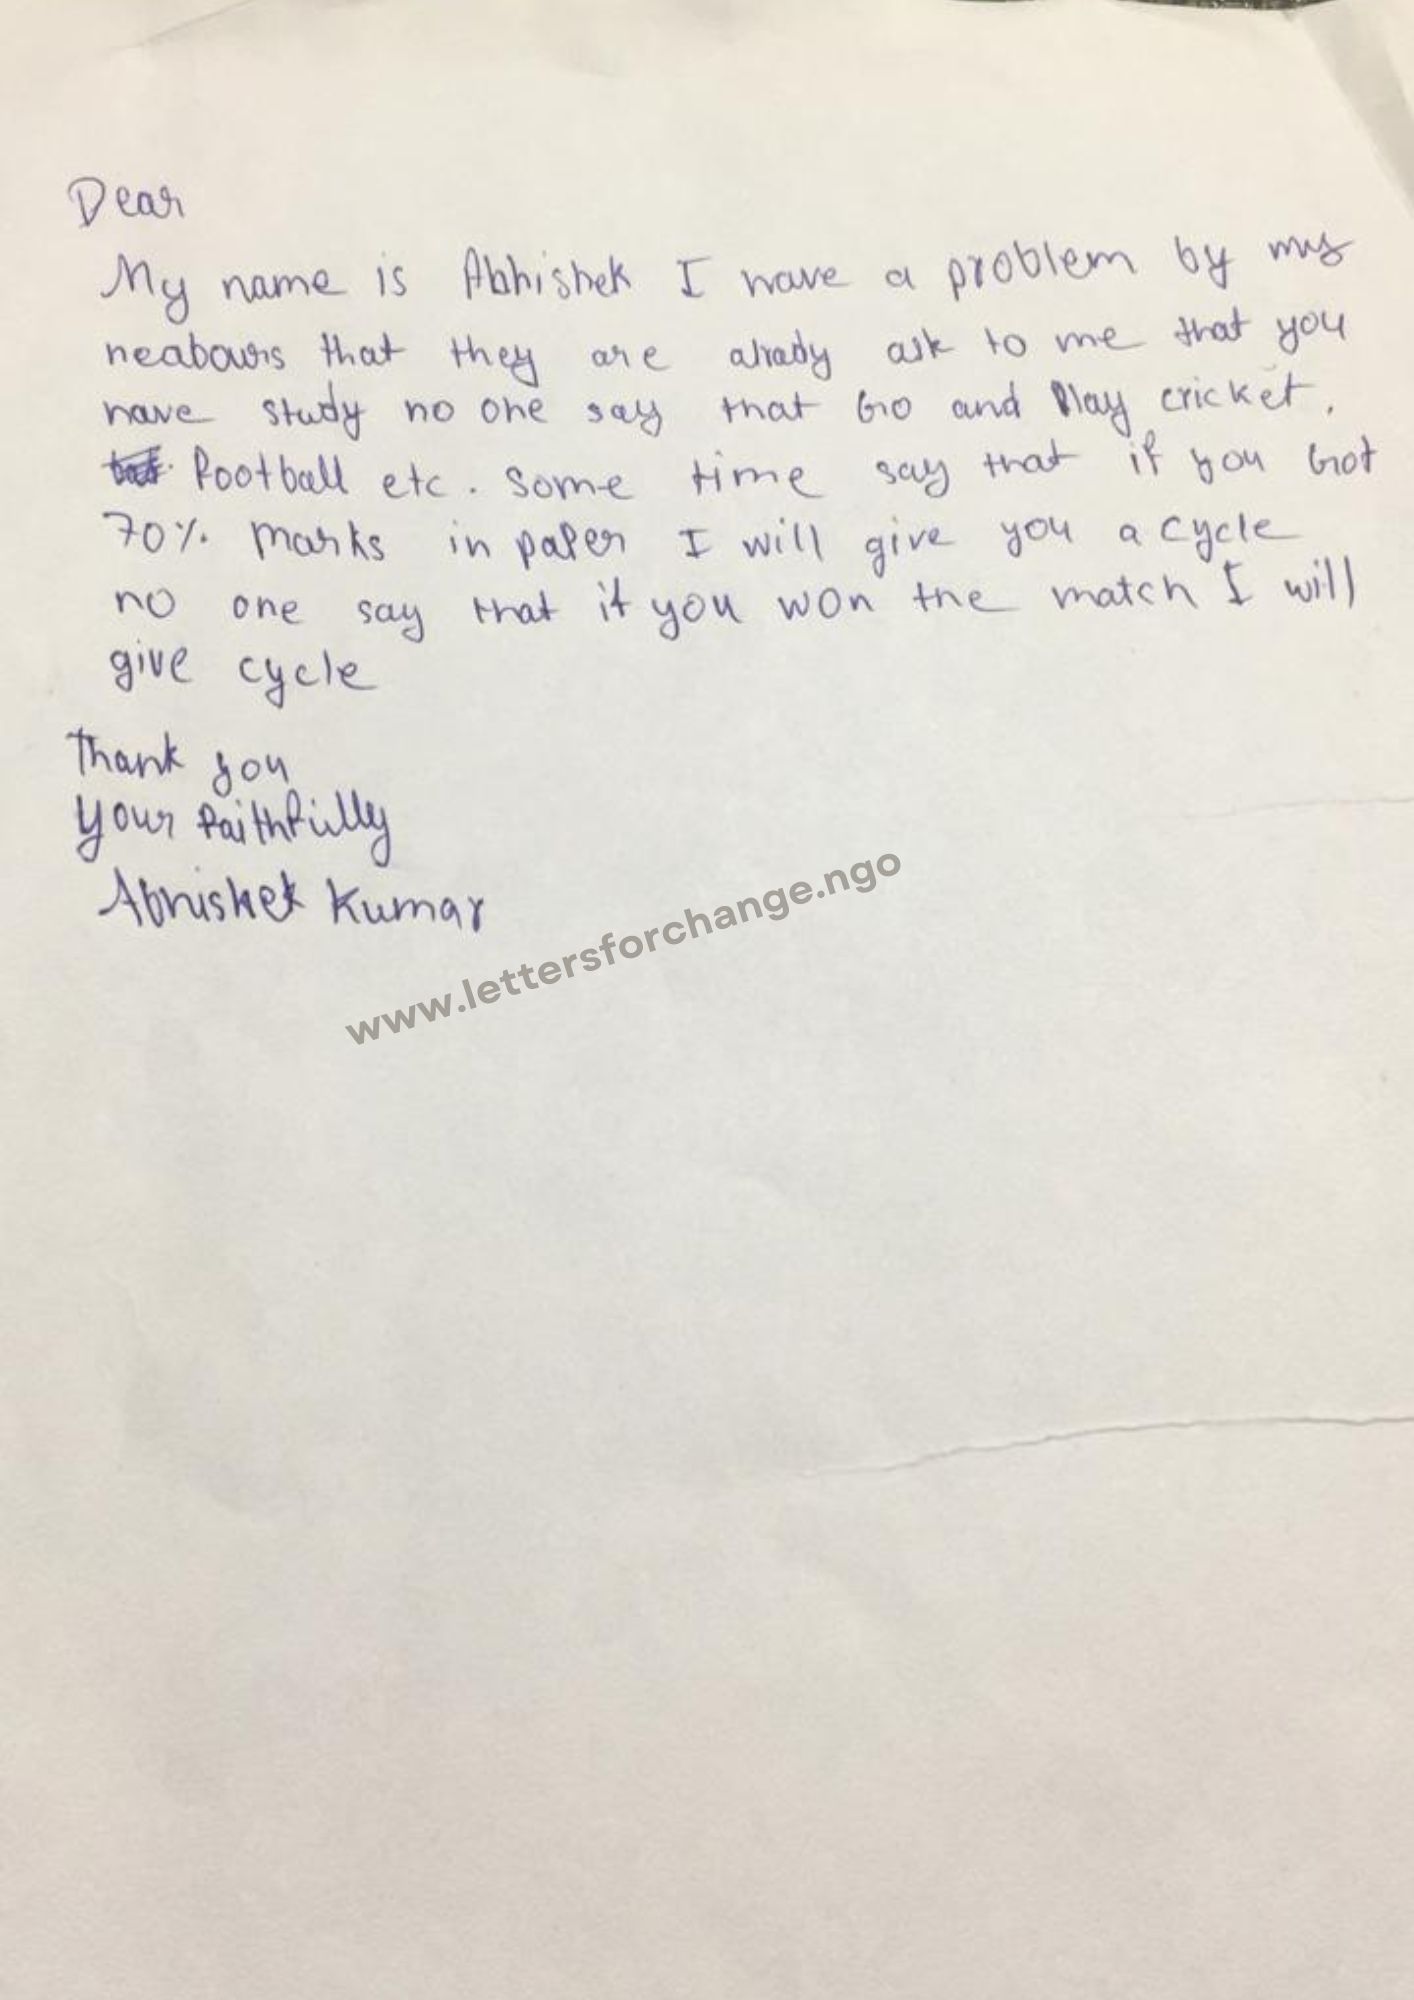 Dear
My name is Abhishek I have a problem by my
neabours that they are alrady ask to me that you
have study no one say that Go and Play cricket,
football etc. Some time say that if you Got
70% marks in paper I will give you a cycle
no one say that if you won the match I will
give cycle
Thank you
your faithfully
Abhishek Kumar
www.lettersforchange.ngo